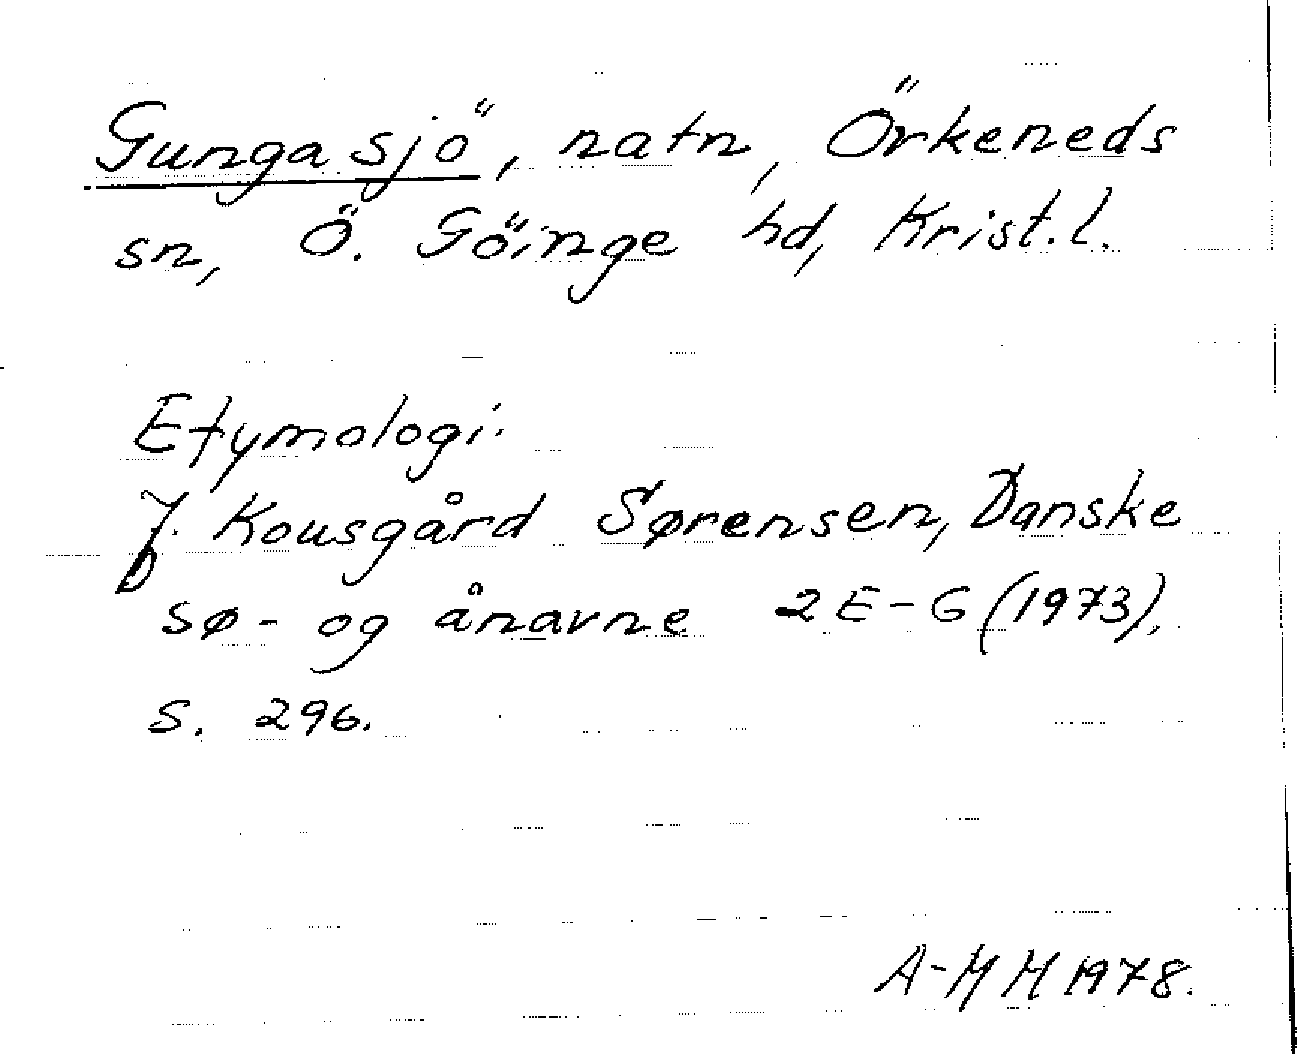 Gungasjö, natn, Örkeneds
sn, Ö. Göinge hd, Krist.l.
Etymologi:
J. Kousgård Sørensen, Danske
sø- og ånavne 2 E-G (1973),
s. 296.
A-MH 1978.